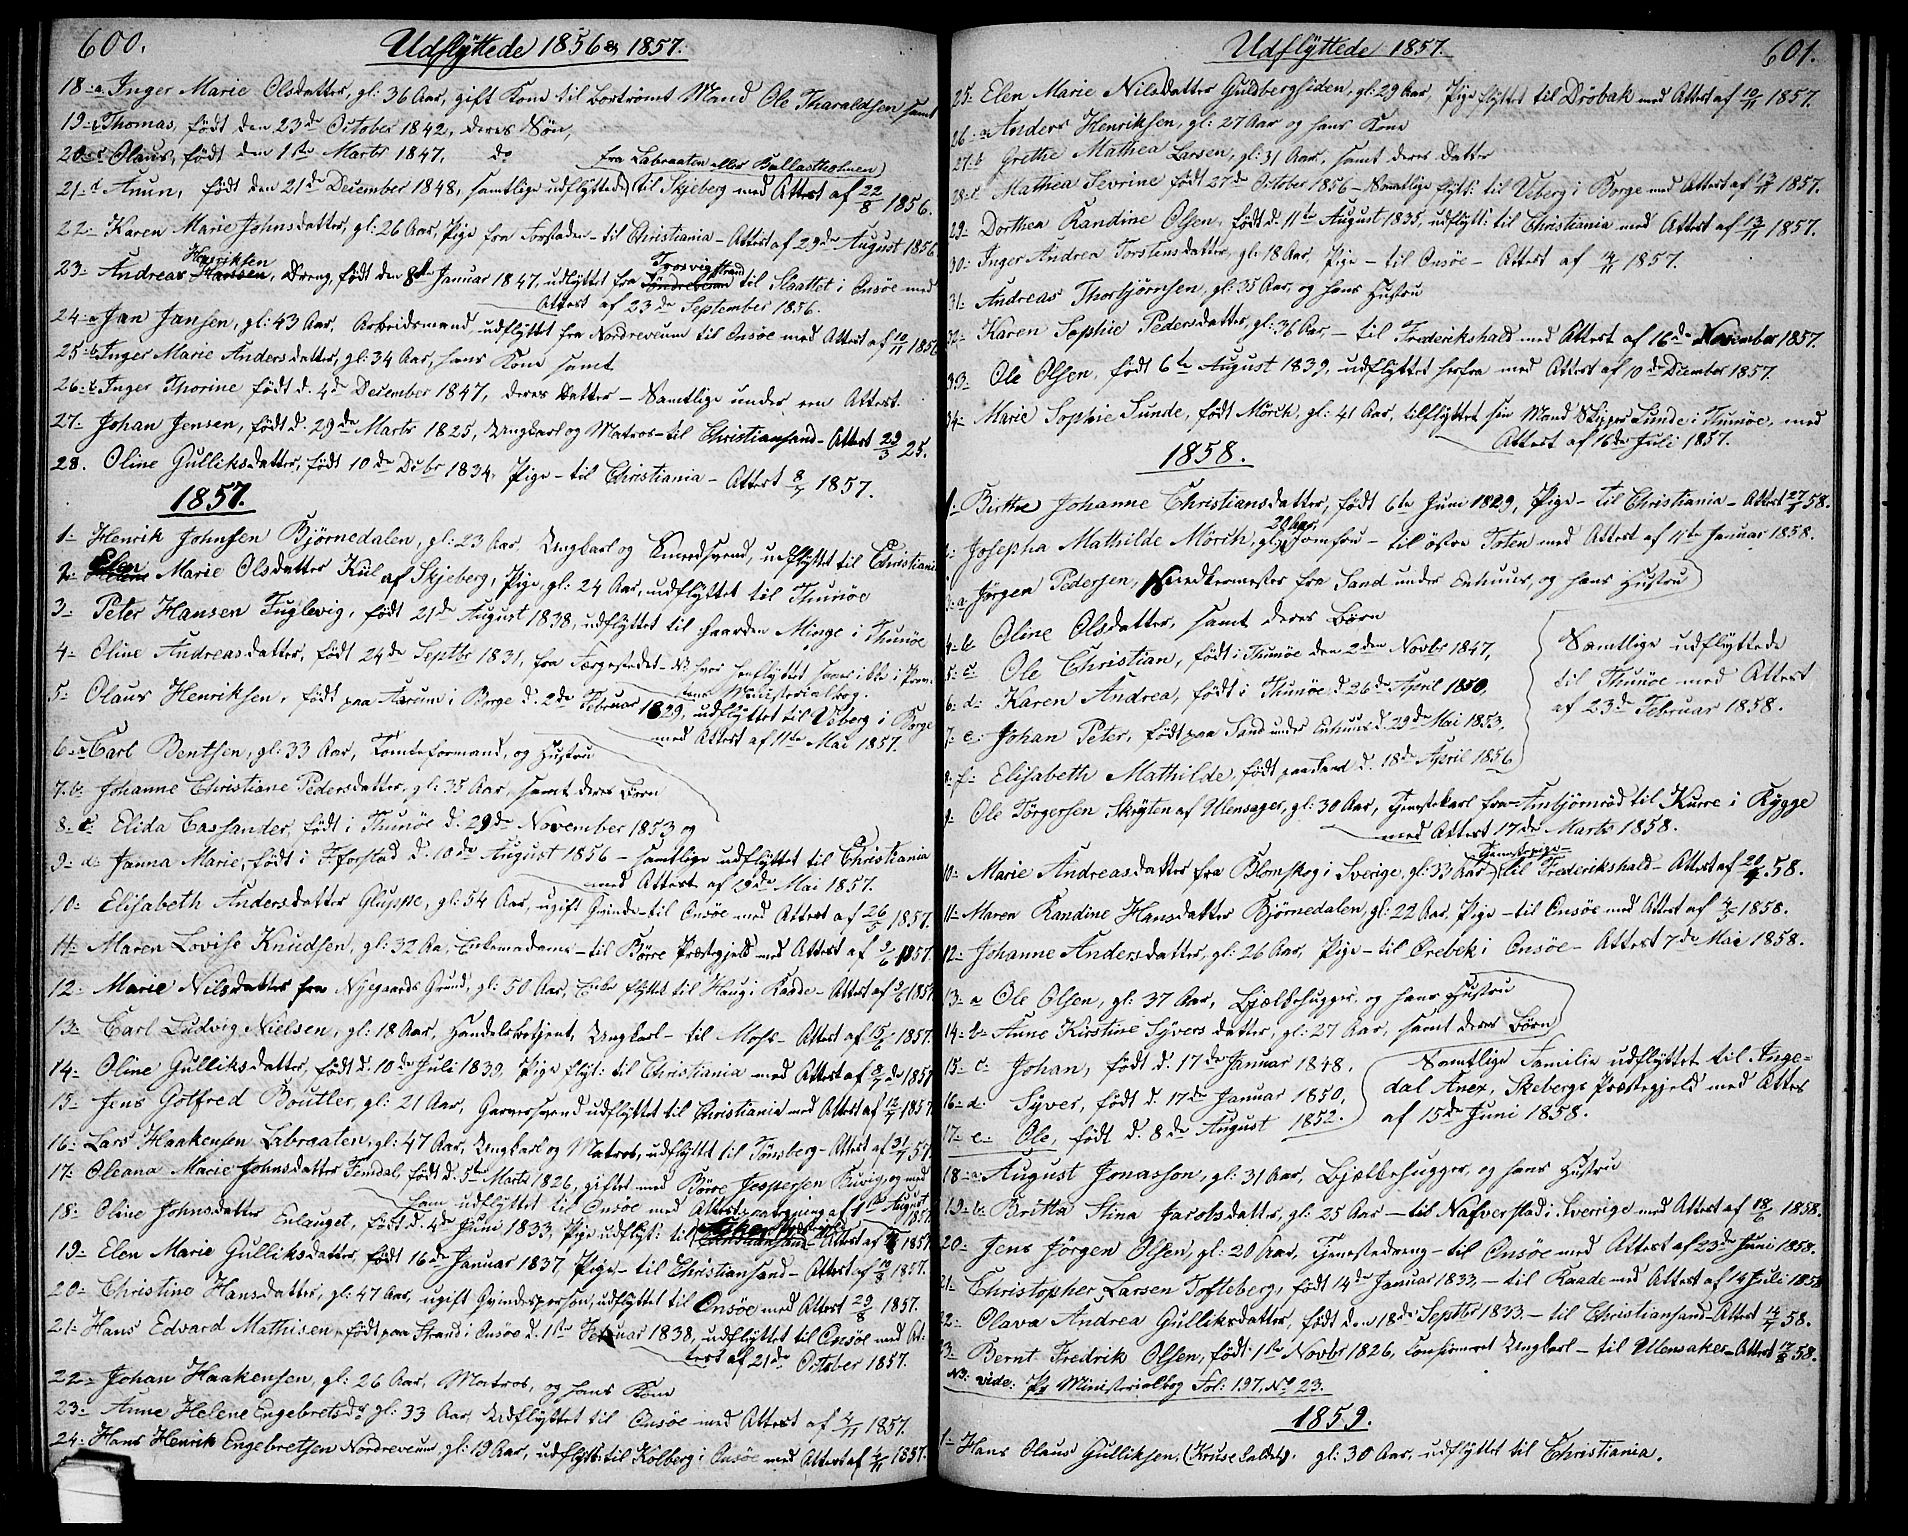 600. Udflyttede 1856 & 1857.
18-a Inger Marie Olsdatter, gl: 36 Aar, gift Kone til bortrømt Mand Ole Tharaldsen samt
19-b Thomas, født den 23de October 1842, deres Søn,
20-c Olaus, født den 1ste Marts 1847. do
fra Labraaten eller Ballastholmen
21-d Anun, født den 21de December 1848, samtlige udflyttede til Skjeberg med Attest af 22/8 1856.
22- Karen Marie Johnsdatter, gl: 26 Aar, Pige fra Forstaden - til Christiania - Attest af 29de August 1856
Henriksen Trosvigstrand
23- Andreas Hansen, Dreng, født den 8de Januar 1847, udflyttet fra til Slaattet i Onsøe med
Attest af 23de September 1856.
24-a Jan Jansen, gl: 43 Aar, Arbeidsmand, udflyttet fra Nordreveum til Onsøe med Attest af 10/11 1856
25-b Inger Marie Andersdatter, gl: 34 Aar, hans Kone samt
26-c Inger Thorine født d. 4de December 1847, deres Datter - Samtlige under een Attest.
27- Johan Jensen, født d. 29de Marts 1825, Ungkarl og Matros - til Christiansand - Attest 29/3 25.
28. Oline Gulliksdatter, født 10de Decbr 1834, Pige - til Christiania - Attest 8/7 1857.
1857.
1- Henrik Johnsen Bjørnedalen, gl: 23 Aar Ungkarl og Smedsvend, udflyttet til Christiania
2- Elen Marie Olsdatter Kul af Skjeberg, Pige, gl: 24 Aar, udflyttet til Thunøe
3- Peter Hansen Fuglevig, født 21de August 1838, udflyttet til Gaarden Minge i Thunøe
4- Oline Andreasdatter, født 24de Septbr 1831, fra Færgestedet - NB hvor henflyttet sees ikke i
Ministerialbog.
5- Olaus Henriksen, født paa Aarum i Borge d. 2de Februar 1829, udflyttet til Viberg i Borge
med Attest af 11te Mai 1857.
6-a Carl Bentsen, gl: 33 Aar, Tomteformand, og Hustru
7-b Johanne Christiane Pedersdatter, gl: 35 Aar, samt deres Børn
8-c Elida Cassander, født i Thunøe d. 29de November 1853 og
9-d Janna Marie, født i F.forstad d. 10de August 1856 - samtlige udflyttet til Christiania
med Attest af 29de Mai 1857.
10- Elisabeth Andersdatter Gluppe, gl: 54 Aar, ugift Qvinde - til Onsøe med Attest af 26/5 1857.
11- Maren Lovise Knudsen, gl: 32 Aar, Enkemadame - til Borre Præstegjeld med Attest af 2/6 1857.
12- Marie Nilsdatter fra Nygaards Grund, gl: 50 Aar, Enke flyttet til Haug i Raade - Attest af 5/6 1857
13- Carl Ludvig Nielsen, gl: 18 Aar, Handelsbetjent, Ungkarl - til Moss - Attest af 15/6 1857.
14- Oline Gulliksdatter, født d. 10de Juli 1839, Pige flyt: til Christiania med Attest af 8/7 1857
15- Jens Gotfred Boutler, gl: 21 Aar, Garversvend udflyttet til Christiania med Attest af 12/7 1857.
16- Lars Haakensen Labraaten, gl: 47 Aar, Ungkarl og Matros, udflyttet til Tönsberg - Attest af 31/7 57.
17- Oleana Marie Johnsdatter Femdal, født d. 5te Marts 1826, giftet med Børre Jespersen Kivig, og med
ham udflyttet til Onsøe med Attestpaategning af 1ste August 1857.
18- Oline Johnsdatter Enlauget, født d. 4de Juni 1833, Pige udflyt: til Attest af 1857
19- Elen Marie Gulliksdatter, født 16de Januar 1837, Pige - til Christiansand - Attest af 19/8 1857.
20- Christine Hansdatter, gl: 47 Aar, ugift Qvindesperson, udflyttet til Onsøe med Attest 29/8 1857.
21- Hans Edvard Mathisen, født paa Strand i Onsøe d. 1ste Februar 1838, udflyttet til Onsøe med At-
test af 21de October 1857.
22- Johan Haakensen, gl: 26 Aar, Matros, og hans Kone
23- Anne Helene Engebretsdr gl: 33 Aar, Udflyttet til Onsøe med Attest af 4/11 1857.
24- Hans Henrik Engebretsen Nordreveum, gl: 19 Aar, udflytt: til Kolberg i Onsøe med Attest af 4/11 1857.
Udflyttede 1857. 601.
25- Elen Marie Nilsdatter Guldbergsiden, gl: 29 Aar Pige flyttet til Dröbak med Attest af 10/11 1857.
26-a Anders Henriksen, gl: 27 Aar og hans Kone
27-b Grethe Mathea Larsen, gl: 31 Aar, samt deres Datter
28-c Mathea Sevrine født 27de October 1856 - Samtlige flytt: til Viberg i Borge med Attest af 1857.
29- Dorthea Randine Olsen, født d. 11te August 1835, udflytt: til Christiania med Attest af 13/11 1857.
30- Inger Andrea Torstensdatter, gl: 18 Aar, Pige - til Onsøe - Attest af 14/11 1857.
31- Andreas Thorbjørnsen, gl: 35 Aar, og hans Hustru
32- Karen Sophie Pedersdatter, gl: 36 Aar, - til Frederikshald med Attest af 16de November 1857.
33- Ole Olsen, født 6te August 1839, udflyttet herfra med Attest af 10de December 1857.
34- Marie Sophie Lunde, født Mörch, gl: 41 Aar, tilflyttet sin Mand Skipper Lunde i Thunøe, med
Attest af 16de Juli 1857.
1858.
1- Birthe Johanne Christiansdatter, født 6te Juni 1829, Pige - til Christiania - Attest 27/1 58.
20 Aar,
2- Josepha Mathilde Mörch, gl: Jomfru - til østre Toten med Attest af 11te Januar 1858.
3-a Jørgen Pedersen, Snedkermester fra Sand under Enhuus, og hans Hustru
4-b Oline Olsdatter, samt deres Børn
5-c Ole Christian, født i Thunøe den 2den Novbr 1847,
6-d Karen Andrea, født i Thunøe d. 26de April 1850,
7-e Johan Peter, født paa Sand under Enhuus d. 29de Mai 1853,
8-f Elisabeth Mathilde, født paa Sand d. 18de April 1856
Samtlige udflyttede
til Thunøe med Attest
af 23de Februar 1858.
9- Ole Törgersen Skryten af Ulensager, gl: 30 Aar, Tjenestekarl fra Ambjørnröd til Kurre i Rygge
med Attest 17de Marts 1858.
Tjenestepige -
10- Marie Andreasdatter fra Blomskog i Sverige, gl: 33 Aar, til Frederikshald - Attest af 20/4 58.
11- Maren Randine Hansdatter Bjørnedalen, gl: 22 Aar, Pige - til Onsøe med Attest af 4/5 1858.
12- Johanne Andersdatter, gl: 26 Aar, Pige - til Orebek i Onsøe - Attest 7de Mai 1858.
13-a Ole Olsen, gl: 37 Aar, Bjælkehugger, og hans Hustru
14-b Anne Kirstine Syversdatter, gl: 27 Aar, samt deres Børn
15-c Johan, født d. 17de Januar 1848.
16-d Syver, født d. 17de Januar 1850,
17-e Ole, født d. 8de August 1852.
Samtlige Familie udflyttet til Inge-
dal Anex, Skebergs Præstegjeld med Attest
af 15de Juni 1858.
18-a August Jonasson, gl: 31 Aar, Bjælkehugger, og hans Hustru
19-b Britta Stina Jacobsdatter, gl: 25 Aar - til Nafverstad i Sverrige med Attest af 18/6 1858.
20- Jens Jörgen Olsen, gl: 20 Aar, Tjenestedreng - til Onsøe med Attest af 23de Juni 1858.
21- Christopher Larsen Tofteberg, født 14de Januar 1833, - til Raade med Attest af 14 Juli 1858
22- Olava Andrea Gulliksdatter, født den 18de Septbr 1833 - til Christiansand - Attest 14/7 58.
23- Bernt Fredrik Olsen, født 1ste Novbr 1826, Confirmeret Ungkarl - til Ulensaker - Attest 17/8 58.
NB: vide: Pr Ministerialbog Fol: 197, No 23.
1859.
1- Hans Olaus Gulliksen, (Kruse kaldet), gl: 30 Aar, udflyttet til Christiania.